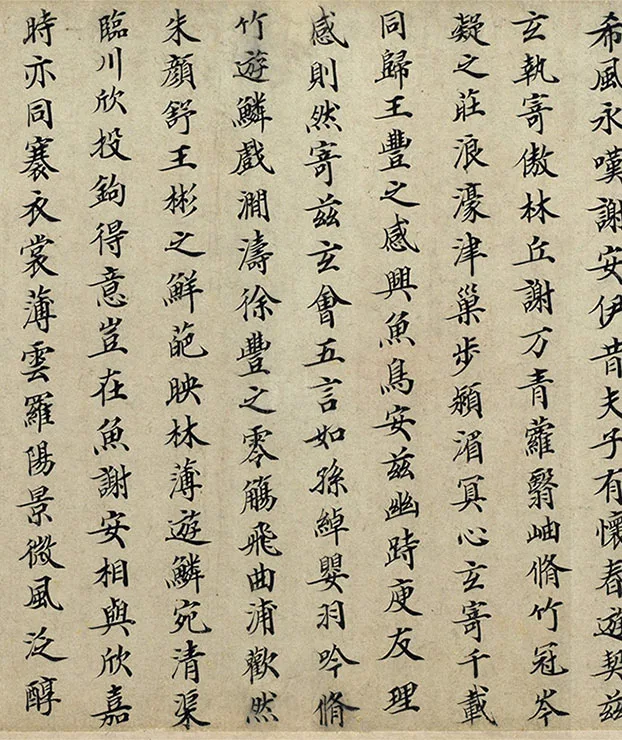 希風永嘆謝安伊昔夫子有懷春遊契茲
玄執寄傲林丘謝万青蘿翳岫脩竹冠岑
凝之莊浪濠津巢步潁湄冥心玄寄千載
同歸王豐之感興魚鳥安茲幽跱庾友理
感則然寄茲玄會五言如孫綽嚶羽吟脩
竹遊鱗戲澗濤徐豐之零觴飛曲浦歡然
朱顏舒王彬之鮮葩映林薄遊鱗宛清渠
臨川欣投鉤得意豈在魚謝安相與欣嘉
時亦同褰衣裳薄雲羅陽景微風泛醇